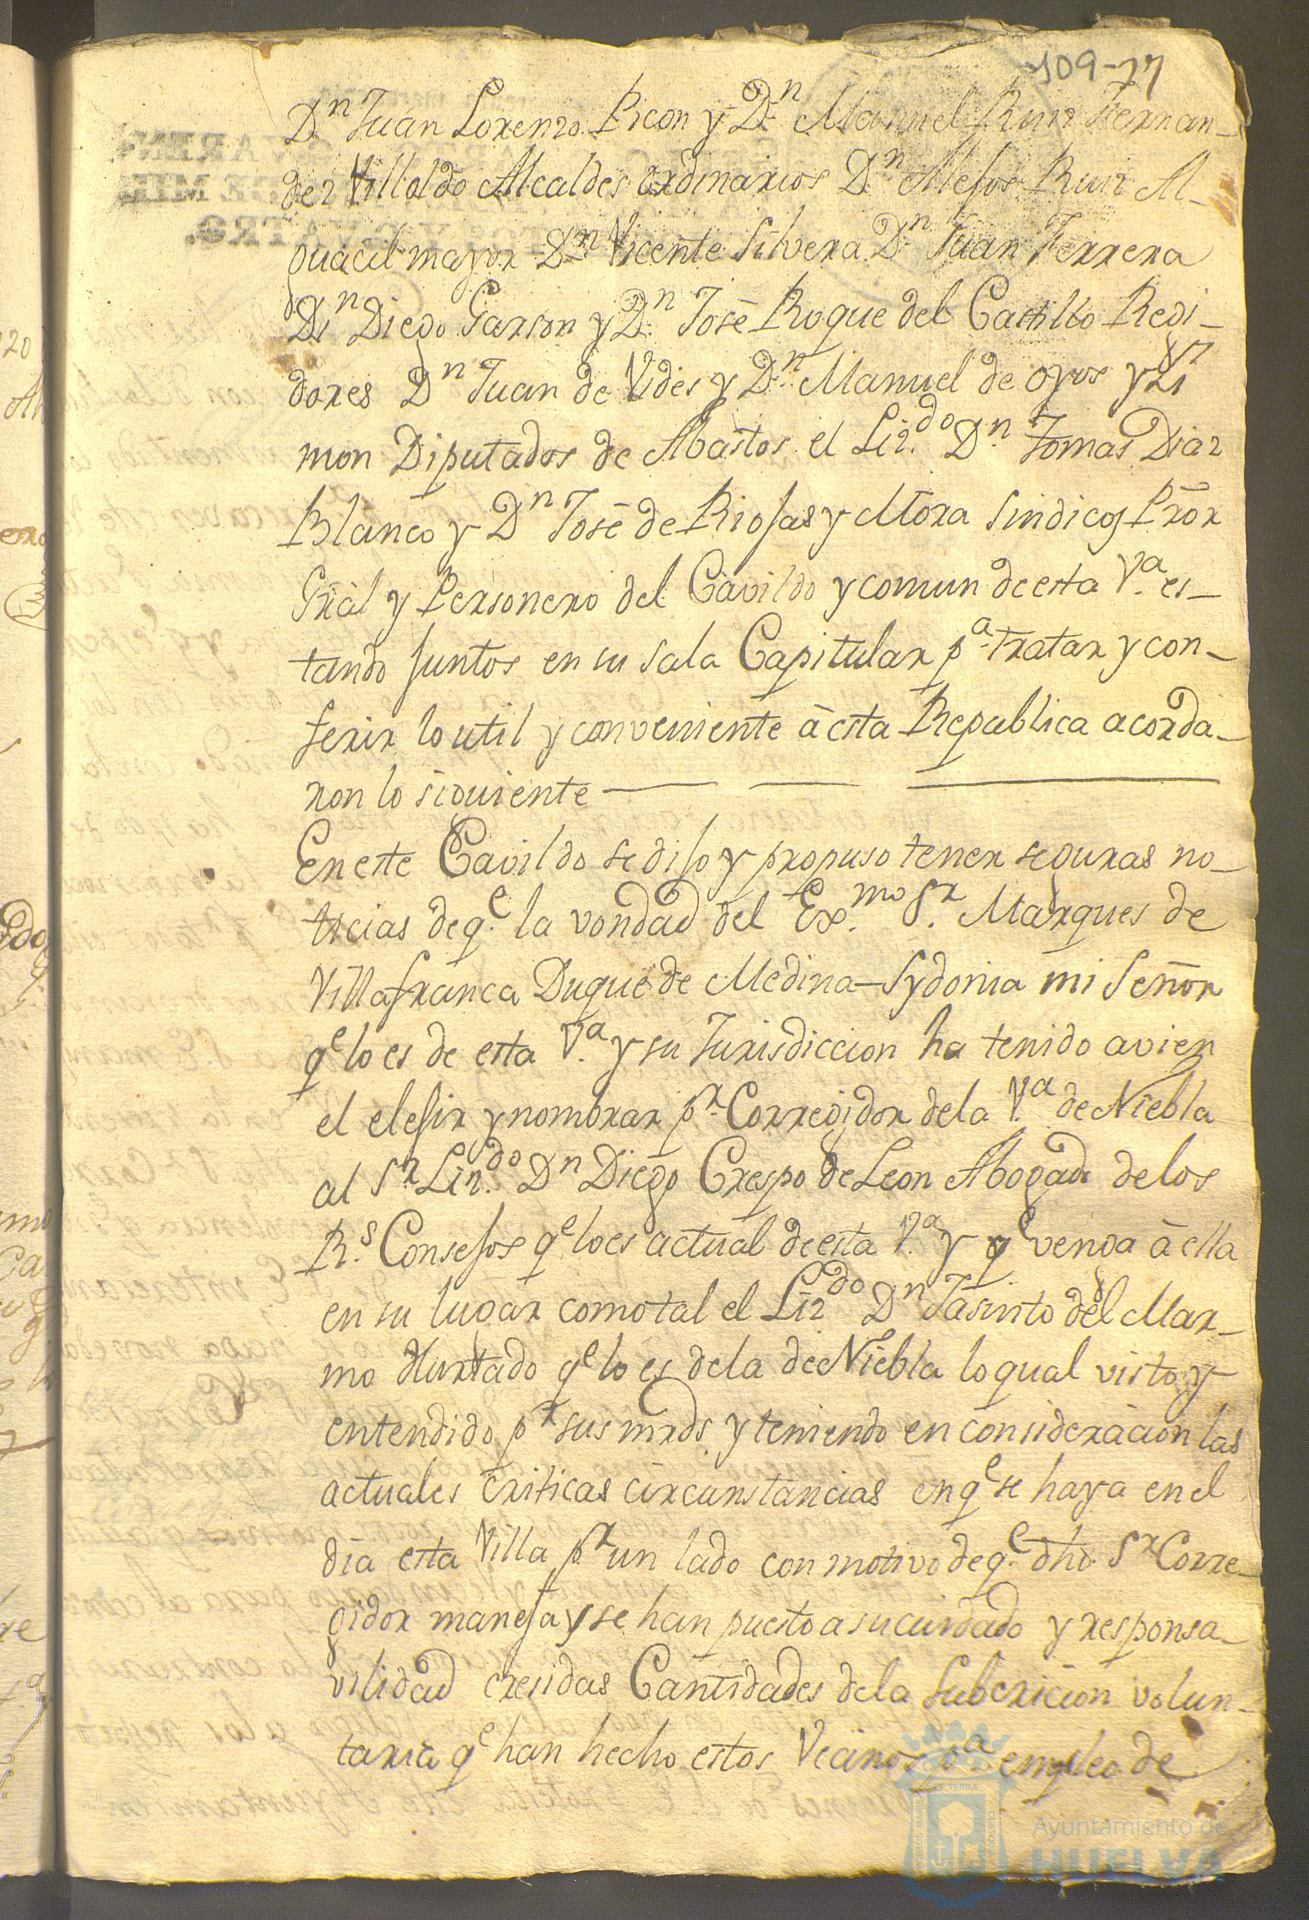 109-77
Dn Juan Lorenzo Picon y Dn Manuel Ruiz Fernan-
dez Villoldo Alcaldes ordinarios Dn Alefos Ruiz Al-
guacil mayor Dn Vicente Silvera Dn Juan Ferrera
Dn Diego Garson y Dn José Roque del Castillo Regi-
dores Dn Juan de Vides y Dn Manuel de oyos y
mon Diputados de Abastos el Lizdo Dn Tomas Diaz
Blanco y Dn José de Riojas y Mora Sindicos Pror
Gral y Personero del Cavildo y comun de esta Va es-
tando juntos en su sala Capitular pa tratar y con-
ferir lo util y conveniente à esta Republica acorda-
ron lo siguiente
En este Cavildo se dijo y propuso tener seguras no-
ticias de qe la vondad del Exmo Sr Marques de
Villafranca Duque de Medina-Sydonia mi Señor
qe lo es de esta Va y su Jurisdiccion ha tenido avien
el elejir y nombrar pr Corregidor de la Va de Niebla
al Sr Lizdo Dn Diego Crespo de Leon Abogado de los
Rs Consejos qe lo es actual de esta Va y qe venga à ella
en su lugar como tal el Lizdo Dn Jasinto del Mar-
mo Hurtado qe lo es de la de Niebla lo qual visto y
entendido pr sus mrds y teniendo en consideracion las
actuales criticas circunstancias en qe se haya en el
dia esta Villa pr un lado con motivo de qe dho Sr Corre-
gidor maneja y se han puesto a su cuidado y responsa-
vilidad cresidas Cantidades de la Subcricion volun-
taria qe han hecho estos Vecinos pa empleo de
Ayuntamiento de
HUELVA